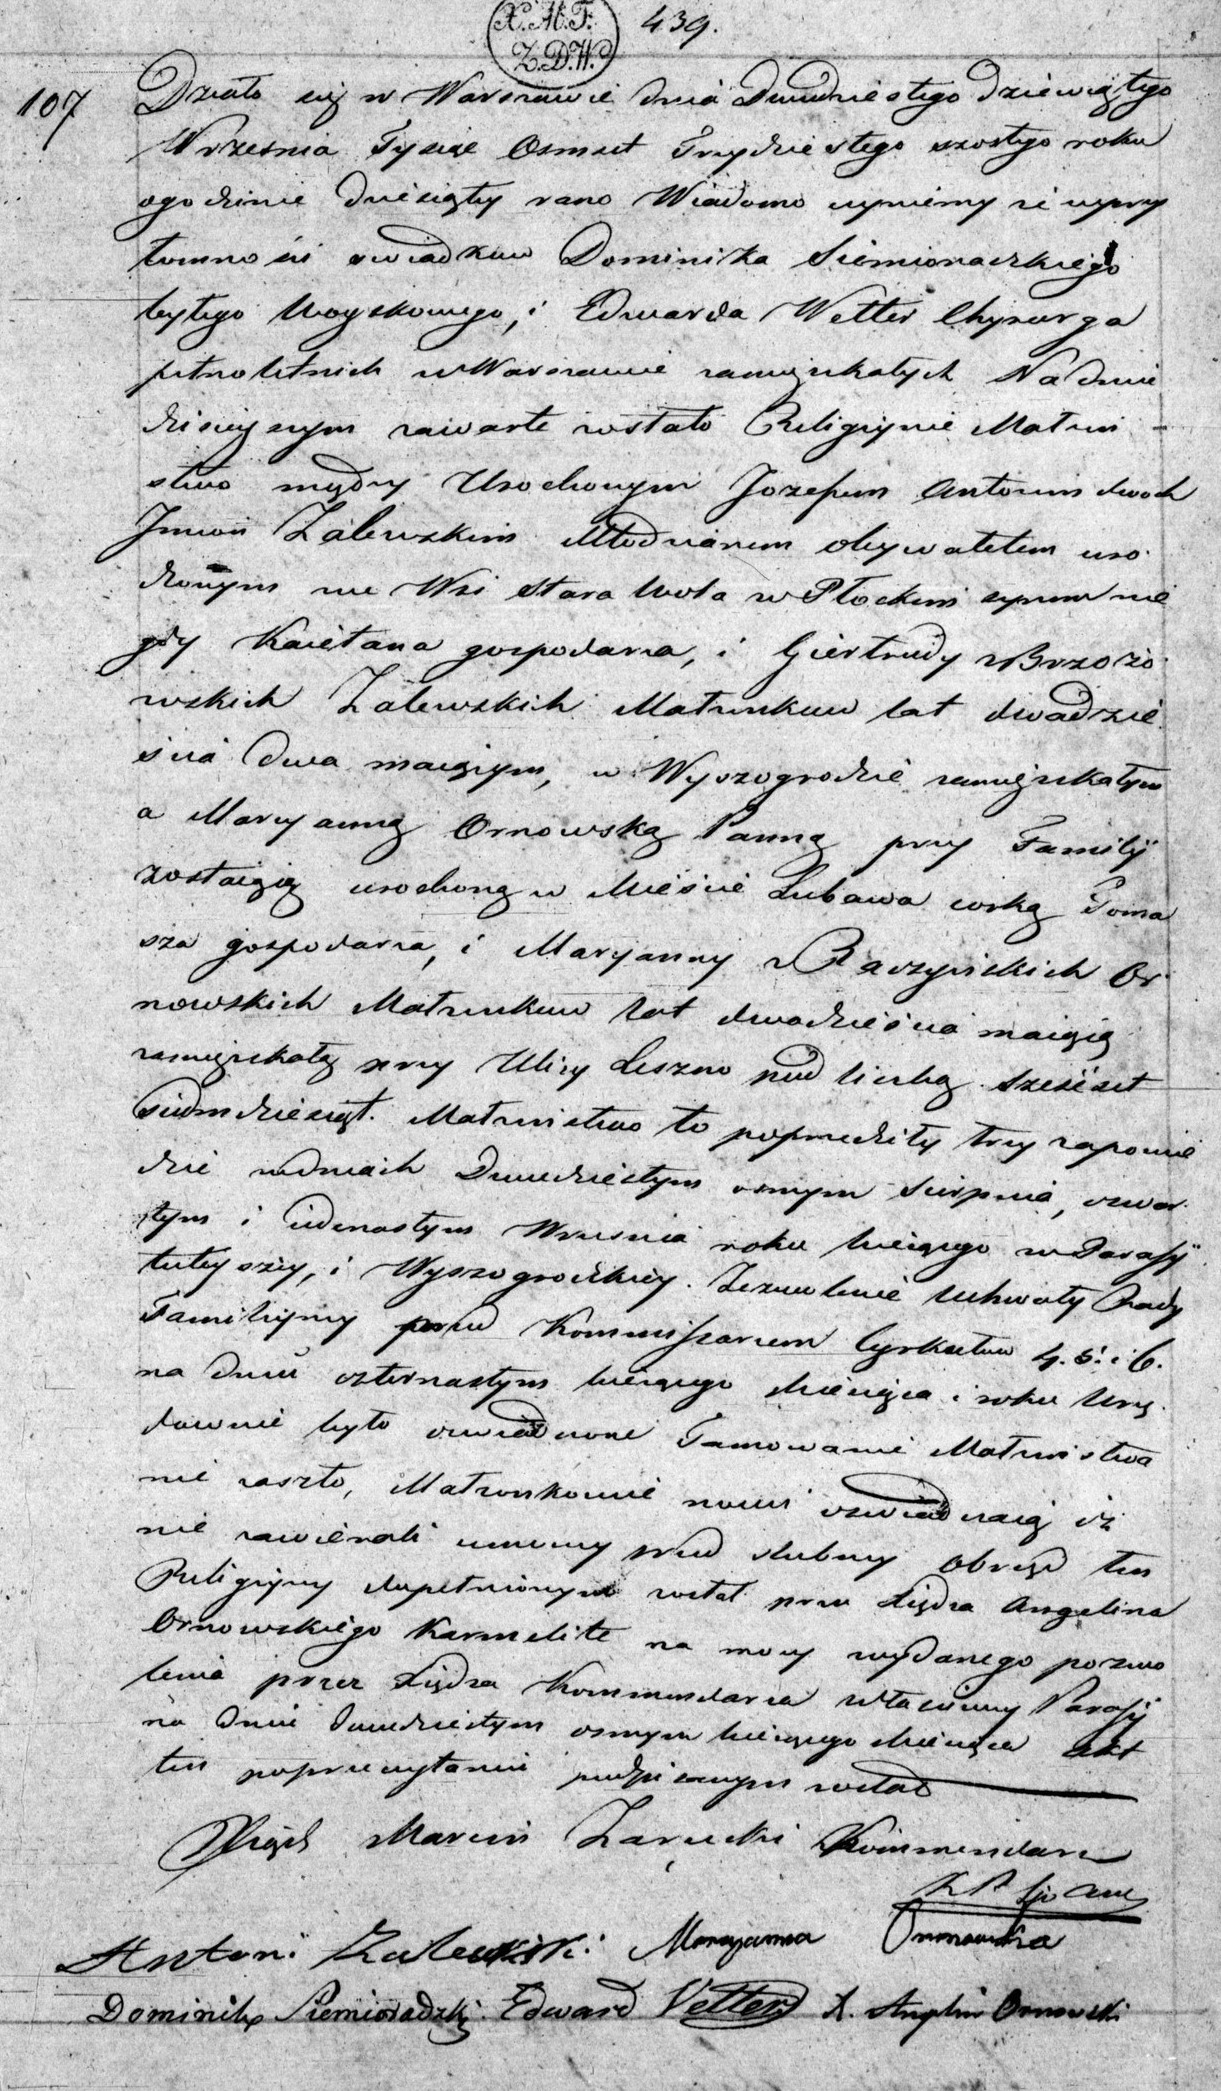 X.M.F. 439.
Z.D.W.
107
Działo się w Warszawie dnia Dwudziestego dziewiątego
Września Tysiąc Osmset Trzydziestego szostego roku
ogodzinie dziesiąty rano Wiadomo czyniemy że wprzy
tomności swiadkuw Dominika Siemieradzkiego
byłego Woyskowego, i Edwarda Wetter Chyrurga
pełnoletnich w Warszawie zamięszkałych Na dniu
dzisieyszym zawarte zostało Religiynie Małżeń
stwo między Urodzonym Jozefem Antonim dwoch
Jmion Zalewskim Młodzianem obywatelem uro
dzonym we Wsi Stara Wola w Płockim synem nie
gdy Kaietana gospodarza, i Giertrudy z Brzozo
wskich Zalewskich Małżonkuw lat dwadzie
ścia dwa maiącym, w Wyszogrodzie zamięszkałym
a Maryanną Ornowską Panną przy Familij
zostaiącą urodzoną w Mieście Lubawa corką Toma
sza gospodarza, i Maryanny z Raczyńskich Or
nowskich Małżonkuw lat dwadzieścia maiącą
zamięszkałą przy Ulicy Leszno pod liczbą sześćset
siedmdziesiąt. Małżeństwo to poprzedziły trzy zapowie
dzie wdniach Dwudziestym osmym Sierpnia, czwar
tym i iedenastym Września roku bieżącego w Parafij
tuteyszey, i Wyszogrodzkiey. Zezwolenie Uchwały Rady
Familiyney przed Kommissarzem Cyrkułuw 4. 5. i 6.
na dniu czternastym bieżącego Miesiąca i roku Urzę
downie było oswiadczone Tamowanie Małżeństwa
nie zaszło, Małżonkowie nowi oswiadczaią iż
nie zawierali umowy przed slubney Obrząd ten
Religiyny dopełnionym został przez Xiędza Angelina
Ornowskiego Karmelitę na mocy wydanego pozwo
lenia przez Xiędza Kommendarza właściwey Parafij
na dniu dwudziestym osmym bieżącego Miesiąca Akt
ten poprzeczytaniu podpisanym został
Xiądz Marcin Zarucki Kommendarz
Antoni Zalewski Maryanna Ornowska
Dominik Siemieradzki Edward Vetter X. Angelin Ornowski